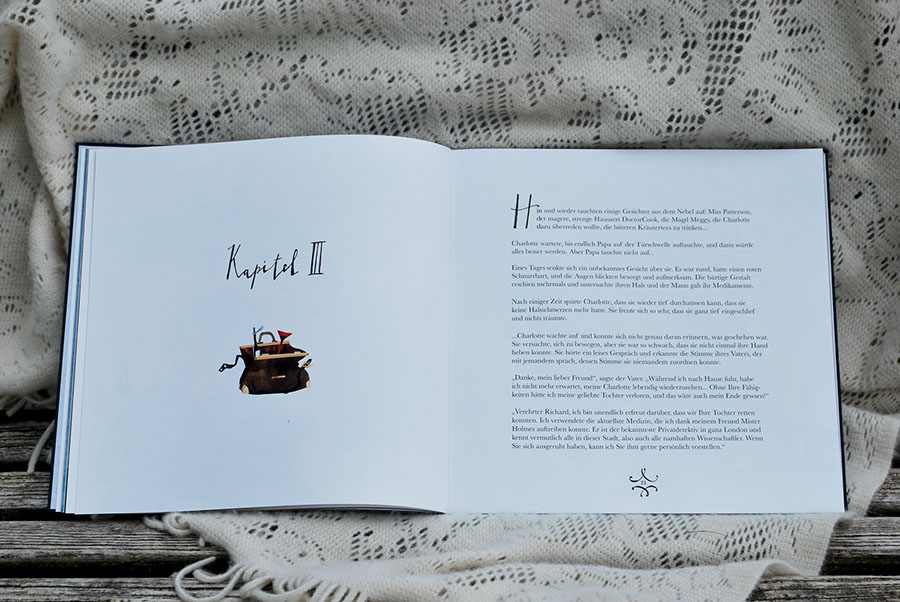 Kapitel III
Hin und wieder tauchten einige Gesichter aus dem Nebel auf: Miss Patterson,
der magere, strenge Hausarzt DoctorCook, die Magd Meggy, die Charlotte
dazu überreden wollte, die bitteren Kräutertees zu trinken...
Charlotte wartete, bis endlich Papa auf der Türschwelle auftauchte, und dann würde
alles besser werden. Aber Papa tauchte nicht auf...
Eines Tages senkte sich ein unbekanntes Gesicht über sie. Es war rund, hatte einen roten
Schnurrbart, und die Augen blickten besorgt und aufmerksam. Die bärtige Gestalt
erschien mehrmals und untersuchte ihren Hals und der Mann gab ihr Medikamente.
Nach einiger Zeit spürte Charlotte, dass sie wieder tief durchatmen kann, dass sie
keine Halsschmerzen mehr hatte. Sie freute sich so sehr, dass sie ganz tief eingeschlief
und nichts träumte.
...Charlotte wachte auf und konnte sich nicht genau daran erinnern, was geschehen war.
Sie versuchte, sich zu bewegen, aber sie war so schwach, dass sie nicht einmal ihre Hand
heben konnte. Sie hörte ein leises Gespräch und erkannte die Stimme ihres Vaters, der
mit jemandem sprach, dessen Stimme sie niemandem zuordnen konnte.
„Danke, mein lieber Freund“, sagte der Vater. „Während ich nach Hause fuhr, habe
ich nicht mehr erwartet, meine Charlotte lebendig wiederzusehen... Ohne Ihre Fähig-
keiten hätte ich meine geliebte Tochter verloren, und das wäre auch mein Ende gewesen!“
„Verehrter Richard, ich bin unendlich erfreut darüber, dass wir Ihre Tochter retten
konnten. Ich verwendete die aktuellste Medizin, die ich dank meinem Freund Mister
Holmes auftreiben konnte. Er ist der bekannteste Privatdetektiv in ganz London und
kennt vermutlich alle in dieser Stadt, also auch alle namhaften Wissenschaftler. Wenn
Sie sich ausgeruht haben, kann ich Sie ihm gerne persönlich vorstellen.“